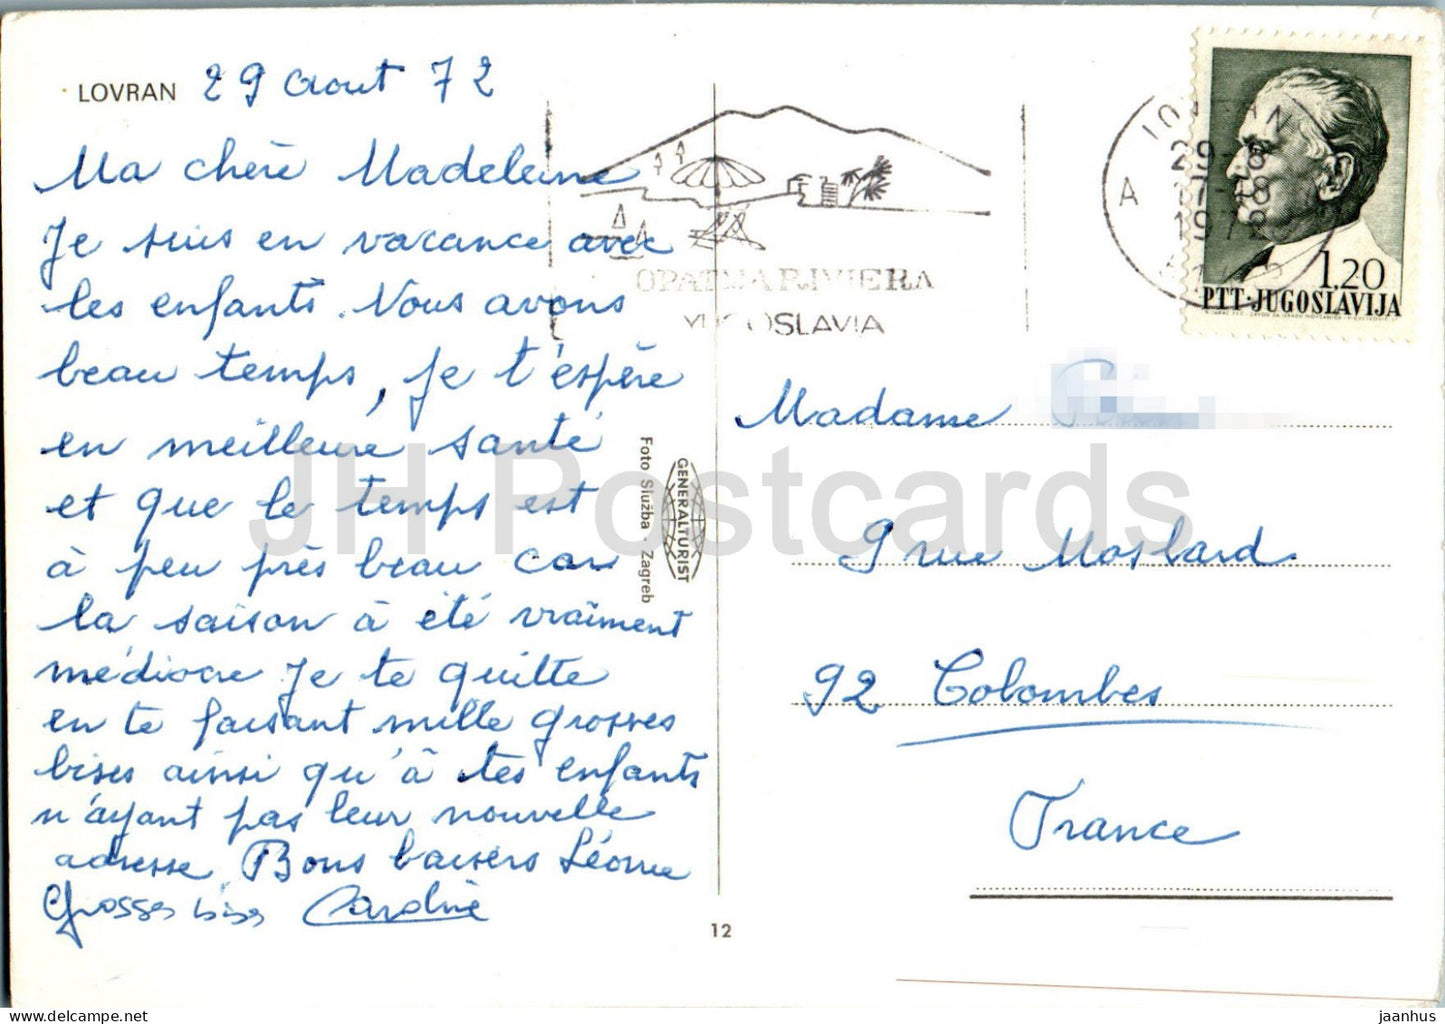 LOVRAN 29 Aout 72
Ma chère Madeleine
Je suis en vacance avec
les enfants. Nous avons
beau temps, je t'espère
en meilleure santé
et que le temps est
à peu près beau car
la saison à été vraiment
médiocre Je te quitte
en te faisant mille grosses
bises ainsi qu'à tes enfants
n'ayant pas leur nouvelle
adresse. Bons baisers Léonie
Grosses bises Caroline
OPATIJA RIVIERA
YUGOSLAVIA
A
29-8
1972
1.20
PTT·JUGOSLAVIJA
GENERALTURIST
Foto Služba · Zagreb
Madame
9 rue Moslard
92 Colombes
France
12
JH Postcards
www.delcampe.net
jaanhus